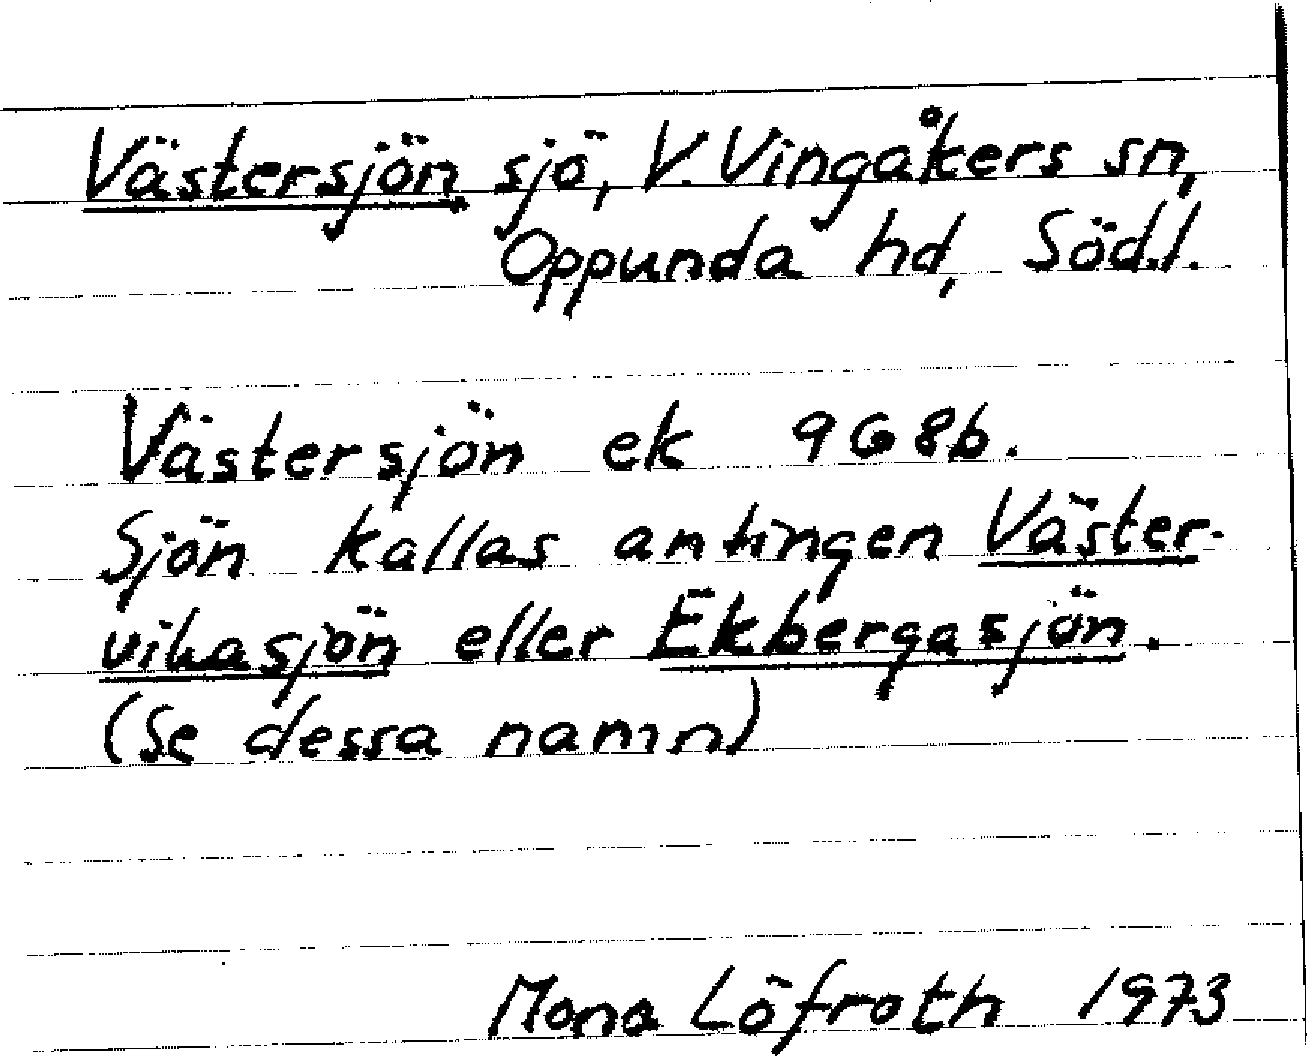 Västersjön sjö, V. Vingåkers sn,
Oppunda hd, Söd.l.
Västersjön ek 9G8b.
Sjön kallas antingen Väster-
vikasjön eller Ekbergasjön.
(Se dessa namn)
Mona Löfroth 1973